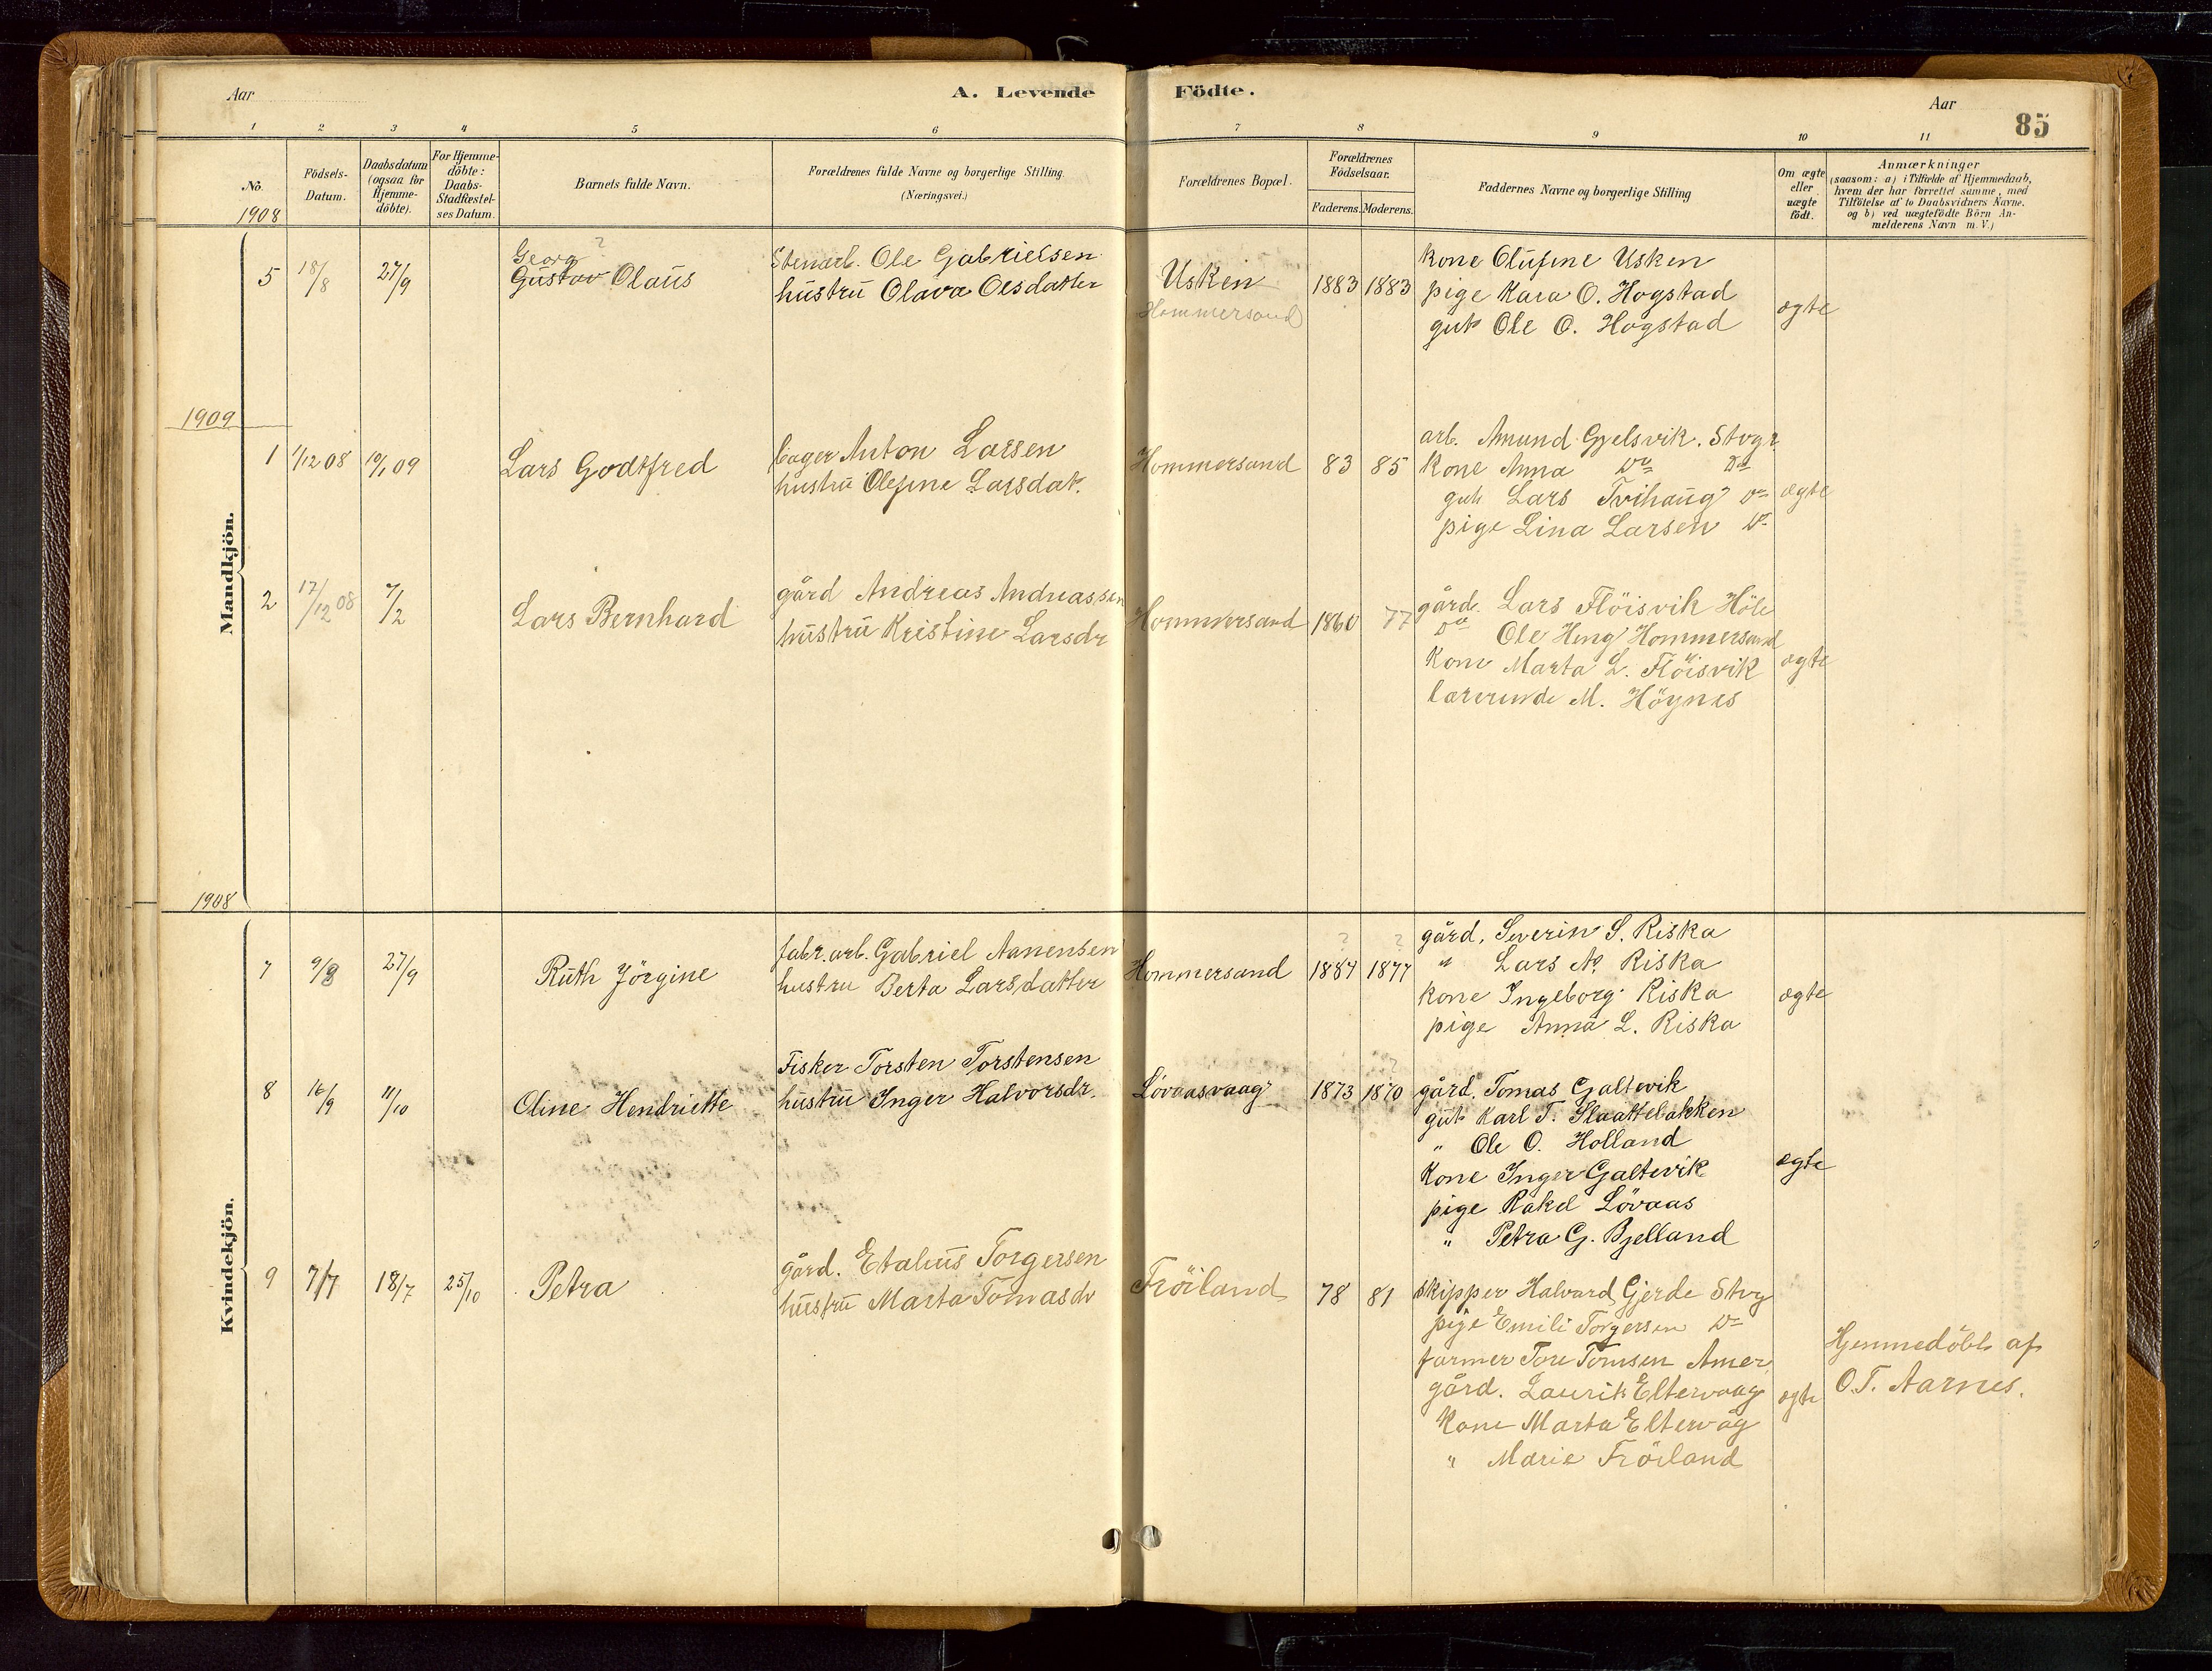 Aar
A. Levende Födte.
Aar
85
1 2 3 4 5 6 7 8 9 10 11
No.
Födsels-Datum.
Daabsdatum (ogsaa for Hjemme-döbte).
For Hjemme-döbte: Daabs-Stadfæstel-ses Datum.
Barnets fulde Navn.
Forældrenes fulde Navne og borgerlige Stilling.
(Næringsvei.)
Forældrenes Bopæl.
Forældrenes Födselsaar.
Faderens. Moderens.
Faddernes Navne og borgerlige Stilling
Om ægte eller uægte født.
Anmærkninger
(saasom: a) i Tilfælde af Hjemmedaab,
hvem der har forrettet samme, med
Tilföielse af to Daabsvidners Navne.
og b) ved uægtefödte Börn An-
melderens Navn m.V.)
Mandkjön.
1908
5 18/8 27/9
Georg ?
Gustav Olaus
Stenarb. Ole Gabrielsen
hustru Olava Olsdatter
Usken
Hommersand
1883 1883
kone Olufine Usken
pige Kara O. Hogstad
gut Ole O. Hogstad
ægte
1909
1 1/12 08 10/1 09
Lars Godtfred
bager Anton Larsen
hustru Olefine Larsdat.
Hommersand
83 85
arb. Amund Gjelsvik. Stvgr.
kone Anna Do Do
gut Lars Tvihaug Do
pige Lina Larsen Do
ægte
2 17/12 08 7/2
Lars Bernhard
gård Andreas Andreassen
hustru Kristine Larsdr
Hommersand
1860 77
gård. Lars Flöisvik Höle
Do Ole Heng Hommersand
Kone Marta L. Flöisvik
lærerinde M. Höynes
ægte
1908
Kvindekjön.
7 9/8 27/9
Ruth Jörgine
fabr. arb. Gabriel Aanensen
hustru Berta Larsdatter
Hommersand
? ?
1884 1877
gård. Severin S. Riska
" Lars N. Riska
kone Ingeborg Riska
pige Anna L. Riska
ægte
8 16/9 11/10
Oline Hendriette
Fisker Torsten Torstensen
hustru Inger Halvorsdr.
Lövaasvaag
?
1873 1870
gård. Tomas Galtevik
gut Karl T. Slaattebakken
" Ole O. Holland
Kone Inger Galtevik
pige Rakel Lövaas
" Petra G. Bjelland
ægte
9 7/7 18/7 25/10
Petra
gård. Etalius Torgersen
hustru Marta Tomasdr
Fröiland
78 81
skipper Halvard Gjerde Stvg
pige Emili Torgersen Do
farmer Tore Tomsen Amer.
gård. Laurits Eltervaag
Kone Marta Eltervåg
" Marie Fröiland
ægte
Hjemmedöbt af
O.T. Aarnes.